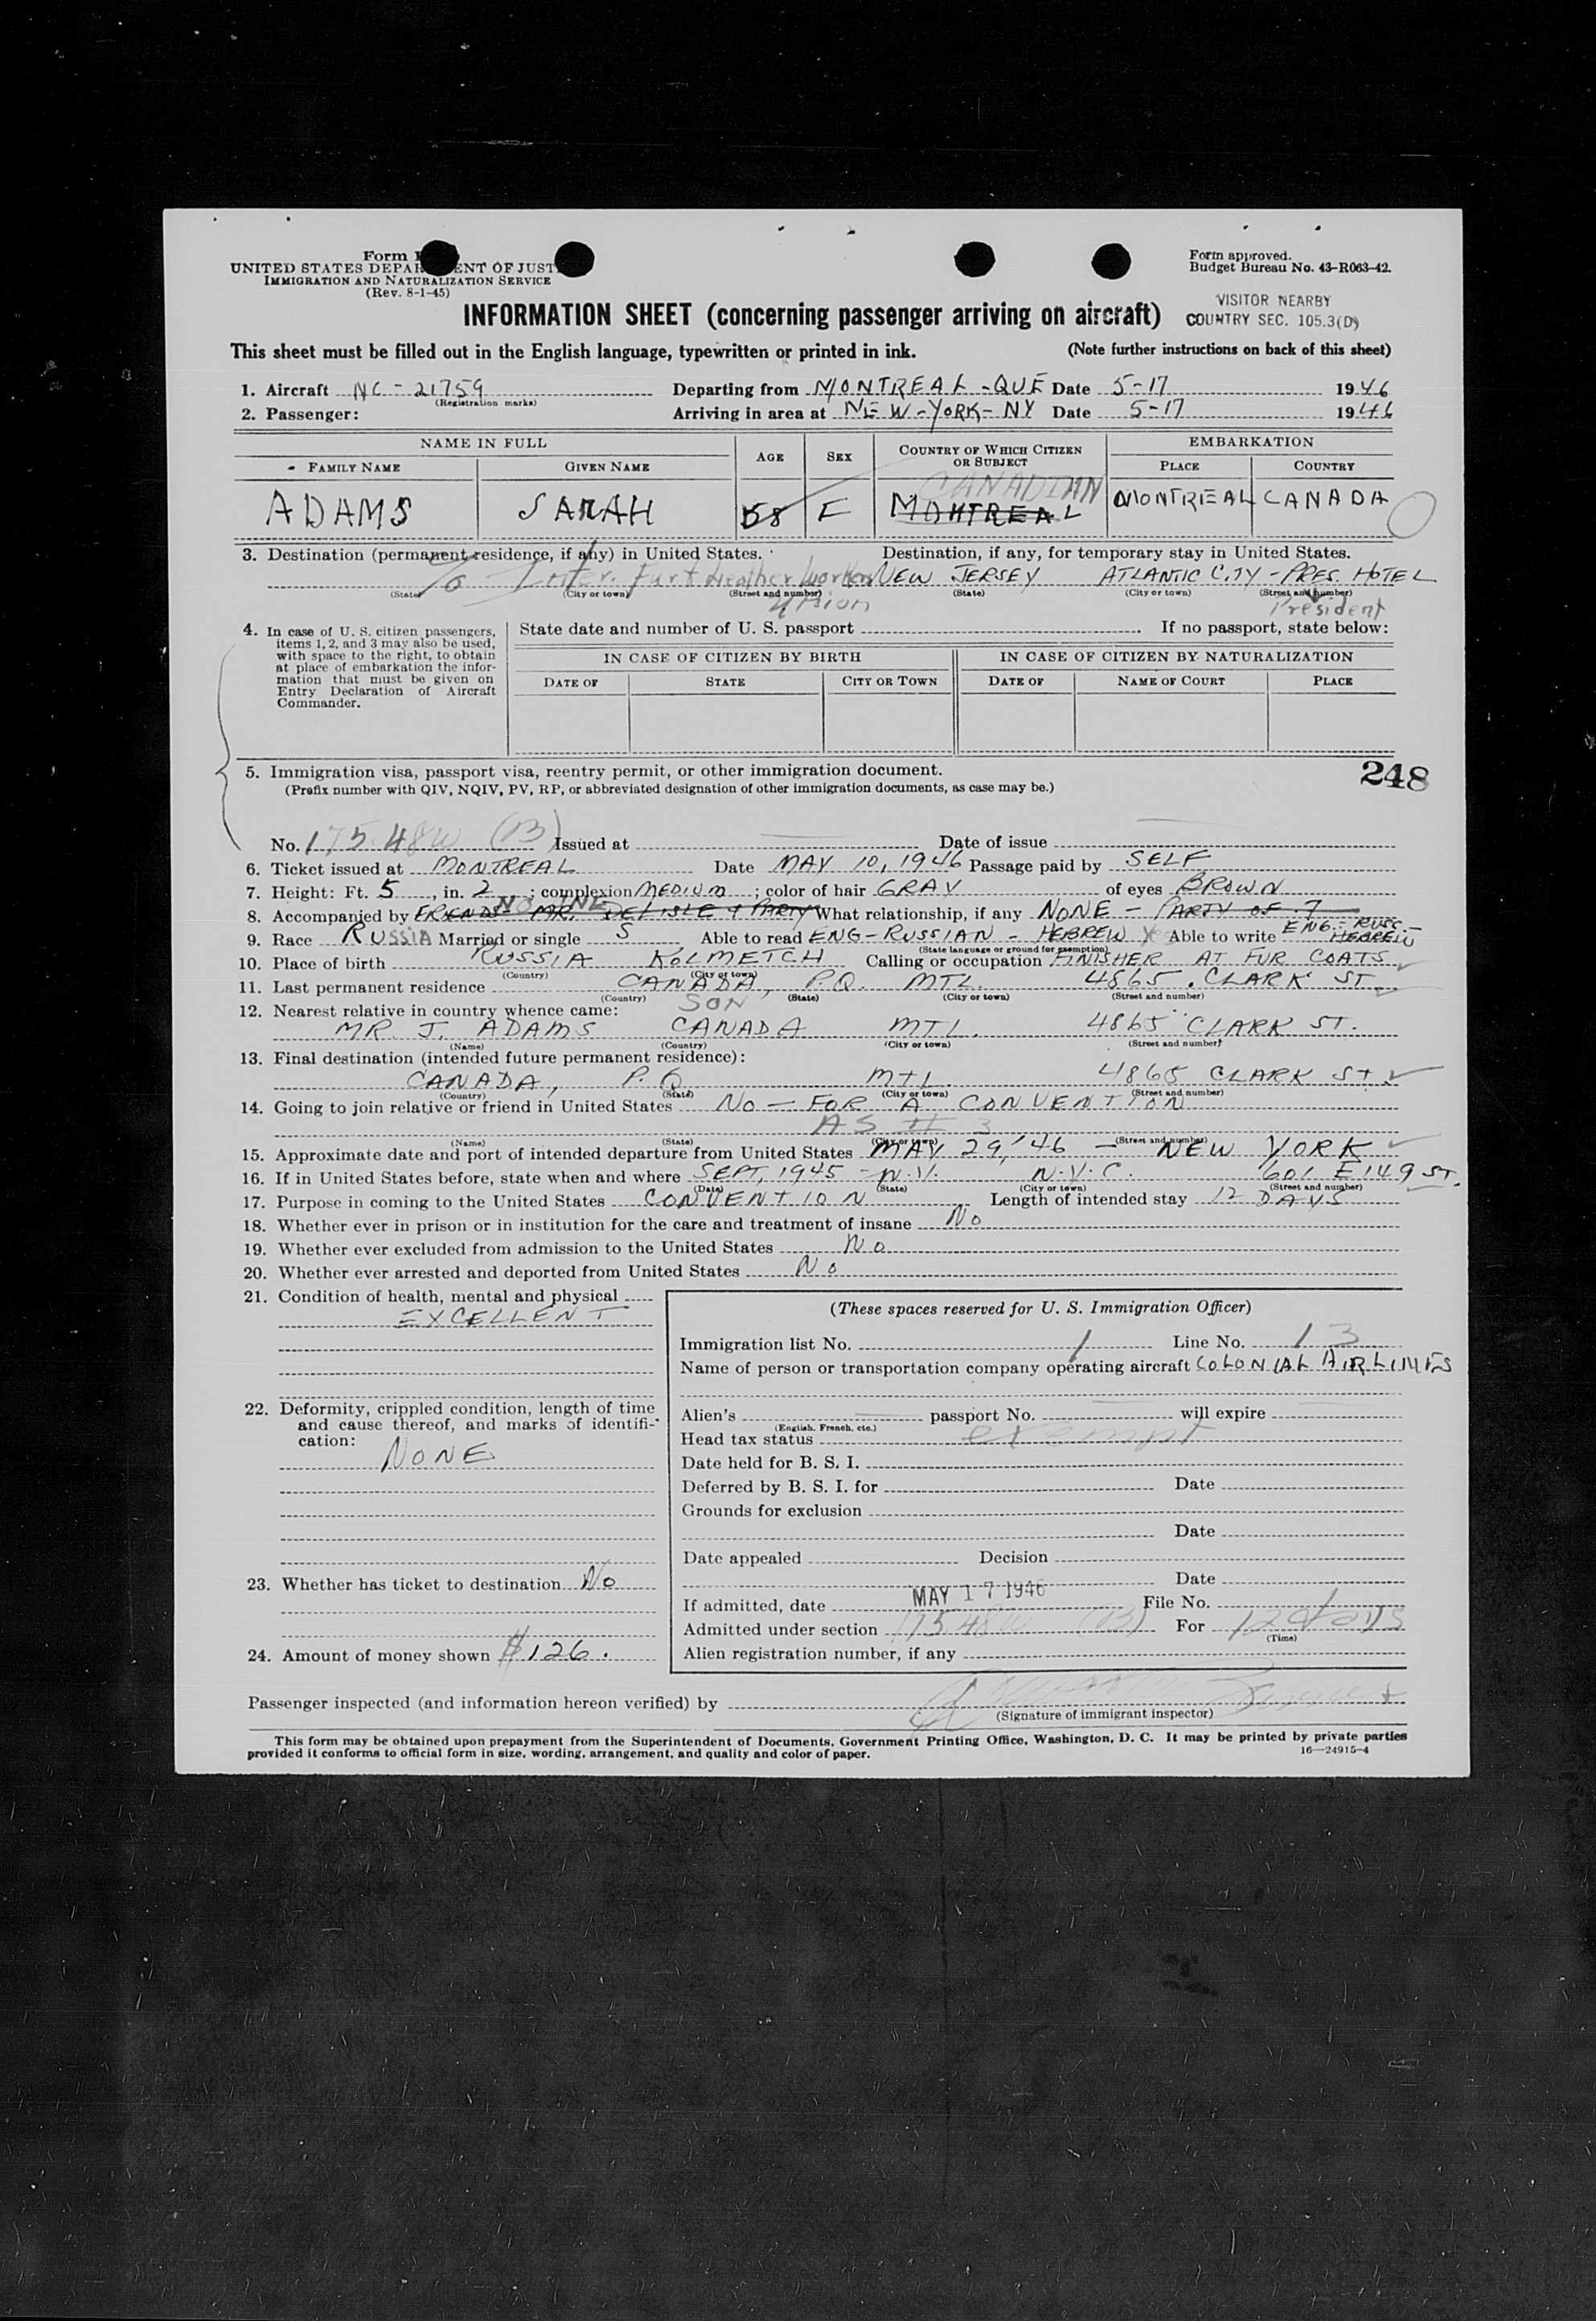 Form
UNITED STATES DEPAR ENT OF JUST
IMMIGRATION AND NATURALIZATION SERVICE
(Rev. 8-1-45)
Form approved.
Budget Bureau No. 43-R063-42.
VISITOR NEARBY
COUNTRY SEC. 105.3(D)
INFORMATION SHEET (concerning passenger arriving on aircraft)
This sheet must be filled out in the English language, typewritten or printed in ink. (Note further instructions on back of this sheet)
1. Aircraft NC-21759 Departing from MONTREAL-QUE Date 5-17 1946
(Registration marks)
2. Passenger: Arriving in area at NEW-YORK-NY Date 5-17 1946
NAME IN FULL AGE SEX COUNTRY OF WHICH CITIZEN OR SUBJECT EMBARKATION
FAMILY NAME GIVEN NAME PLACE COUNTRY
CANADIAN
ADAMS SARAH 58 F MONTREAL MONTREAL CANADA
3. Destination (permanent residence, if any) in United States. Destination, if any, for temporary stay in United States.
c/o Inter. Fur & Leather Workers NEW JERSEY ATLANTIC CITY - PRES. HOTEL
(State) (City or town) (Street and number) (State) (City or town) (Street and number)
Union President
4. In case of U. S. citizen passengers, items 1, 2, and 3 may also be used, with space to the right, to obtain at place of embarkation the information that must be given on Entry Declaration of Aircraft Commander.
State date and number of U. S. passport If no passport, state below:
IN CASE OF CITIZEN BY BIRTH IN CASE OF CITIZEN BY NATURALIZATION
DATE OF STATE CITY OR TOWN DATE OF NAME OF COURT PLACE
5. Immigration visa, passport visa, reentry permit, or other immigration document. 248
(Prefix number with QIV, NQIV, PV, RP, or abbreviated designation of other immigration documents, as case may be.)
No. 175.48W (B) Issued at Date of issue
6. Ticket issued at MONTREAL Date MAY 10, 1946 Passage paid by SELF
7. Height: Ft. 5, in. 2; complexion MEDIUM; color of hair GRAY of eyes BROWN
NONE
8. Accompanied by FRIENDS - MR. DELISLE & PARTY What relationship, if any NONE - PARTY OF 7
9. Race RUSSIA Married or single S, Able to read ENG-RUSSIAN-HEBREW Yes Able to write ENG-RUSS-HEBREW
(State language or ground for exemption)
10. Place of birth RUSSIA KOLMETCH Calling or occupation FINISHER AT FUR COATS
(Country) (City or town)
11. Last permanent residence CANADA, P.Q. MTL. 4865 CLARK ST
(Country) (State) (City or town) (Street and number)
12. Nearest relative in country whence came: SON
MR. J. ADAMS CANADA MTL. 4865 CLARK ST.
(Name) (Country) (City or town) (Street and number)
13. Final destination (intended future permanent residence):
CANADA, P.Q MTL 4865 CLARK ST.
(Country) (State) (City or town) (Street and number)
14. Going to join relative or friend in United States NO - FOR A CONVENTION
AS # 3
(Name) (State) (City or town) (Street and number)
15. Approximate date and port of intended departure from United States MAY 29, '46 - NEW YORK
16. If in United States before, state when and where SEPT, 1945 - N.Y. N.Y.C. 601 E 149 ST.
(Date) (State) (City or town) (Street and number)
17. Purpose in coming to the United States CONVENTION Length of intended stay 12 DAYS
18. Whether ever in prison or in institution for the care and treatment of insane NO
19. Whether ever excluded from admission to the United States NO
20. Whether ever arrested and deported from United States NO
21. Condition of health, mental and physical
EXCELLENT
22. Deformity, crippled condition, length of time and cause thereof, and marks of identification:
NONE
23. Whether has ticket to destination NO
24. Amount of money shown $126.
(These spaces reserved for U. S. Immigration Officer)
Immigration list No. 1 Line No. 13
Name of person or transportation company operating aircraft COLONIAL AIRLINES
Alien's passport No. will expire
(English, French, etc.)
Head tax status exempt
Date held for B. S. I.
Deferred by B. S. I. for Date
Grounds for exclusion
Date
Date appealed Decision
Date
If admitted, date MAY 17 1946 File No.
Admitted under section 175.48W (B) For 12 days
(Time)
Alien registration number, if any
Passenger inspected (and information hereon verified) by
(Signature of immigrant inspector)
This form may be obtained upon prepayment from the Superintendent of Documents, Government Printing Office, Washington, D. C. It may be printed by private parties
provided it conforms to official form in size, wording, arrangement, and quality and color of paper. 16—24915-4